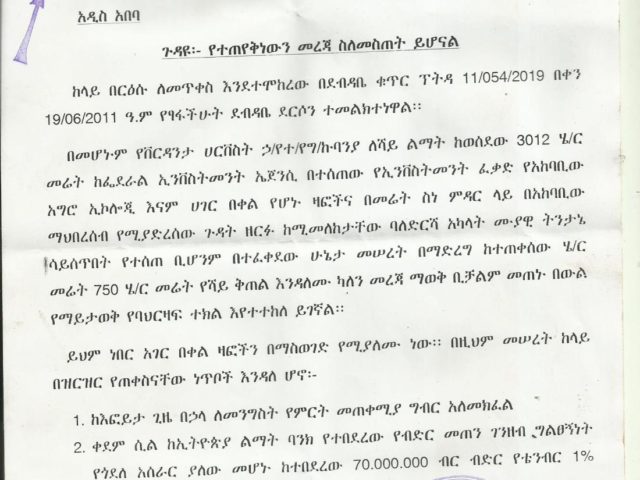 አዲስ አበባ
ጉዳዩ፡- የተጠየቅነውን መረጃ ስለመስጠት ይሆናል
ከላይ በርዕሱ ለመጥቀስ እንደተሞከረው በደብዳቤ ቁጥር ፕትዳ 11/054/2019 በቀን
19/06/2011 ዓ.ም የፃፋችሁት ደብዳቤ ደርሶን ተመልክተነዋል፡፡
በመሆኑም የቨርዳንታ ሀርቨስት ኃ/የተ/የግ/ኩባንያ ለሻይ ልማት ከወሰደው 3012 ሄ/ር
መሬት ከፌደራል ኢንቨስትመንት ኤጀንሲ በተሰጠው የኢንቨስትመንት ፈቃድ የአከባቢው
አግሮ ኢኮሎጂ እናም ሀገር በቀል የሆኑ ዛፎችና በመሬት ስነ ምዳር ላይ በአከባቢው
ማህበረሰብ የሚያድረስው ጉዳት ዘርፉ ከሚመለከታቸው ባለድርሻ አካላት ሙያዊ ትንታኔ
ሳይሰጥበት የተሰጠ ቢሆንም በተፈቀደው ሁኔታ መሠረት በማድረግ ከተጠቀሰው ሄ/ር
መሬት 750 ሄ/ር መሬት የሻይ ቅጠል እንዳለሙ ካለን መረጃ ማወቅ ቢቻልም መጠኑ በውል
የማይታወቅ የባህርዛፍ ተክል እየተተከለ ይገኛል፡፡
ይህም ነበር አገር በቀል ዛፎችን በማስወገድ የሚያለሙ ነው፡፡ በዚህም መሠረት ከላይ
በዝርዝር የጠቀስናቸው ነጥቦች እንዳለ ሆኖ፡-
1. ከእፎይታ ጊዜ በኃላ ለመንግስት የምርት መጠቀሚያ ግብር አለመክፈል
2. ቀደም ሲል ከኢትዮጵያ ልማት ባንክ የተበደረው የብድር መጠን ገንዘብ ግልፀኝነት
የጎደለ አሰራር ያለው መሆኑ ከተበደረው 70.000.000 ብር ብድር የቴንብር 1%